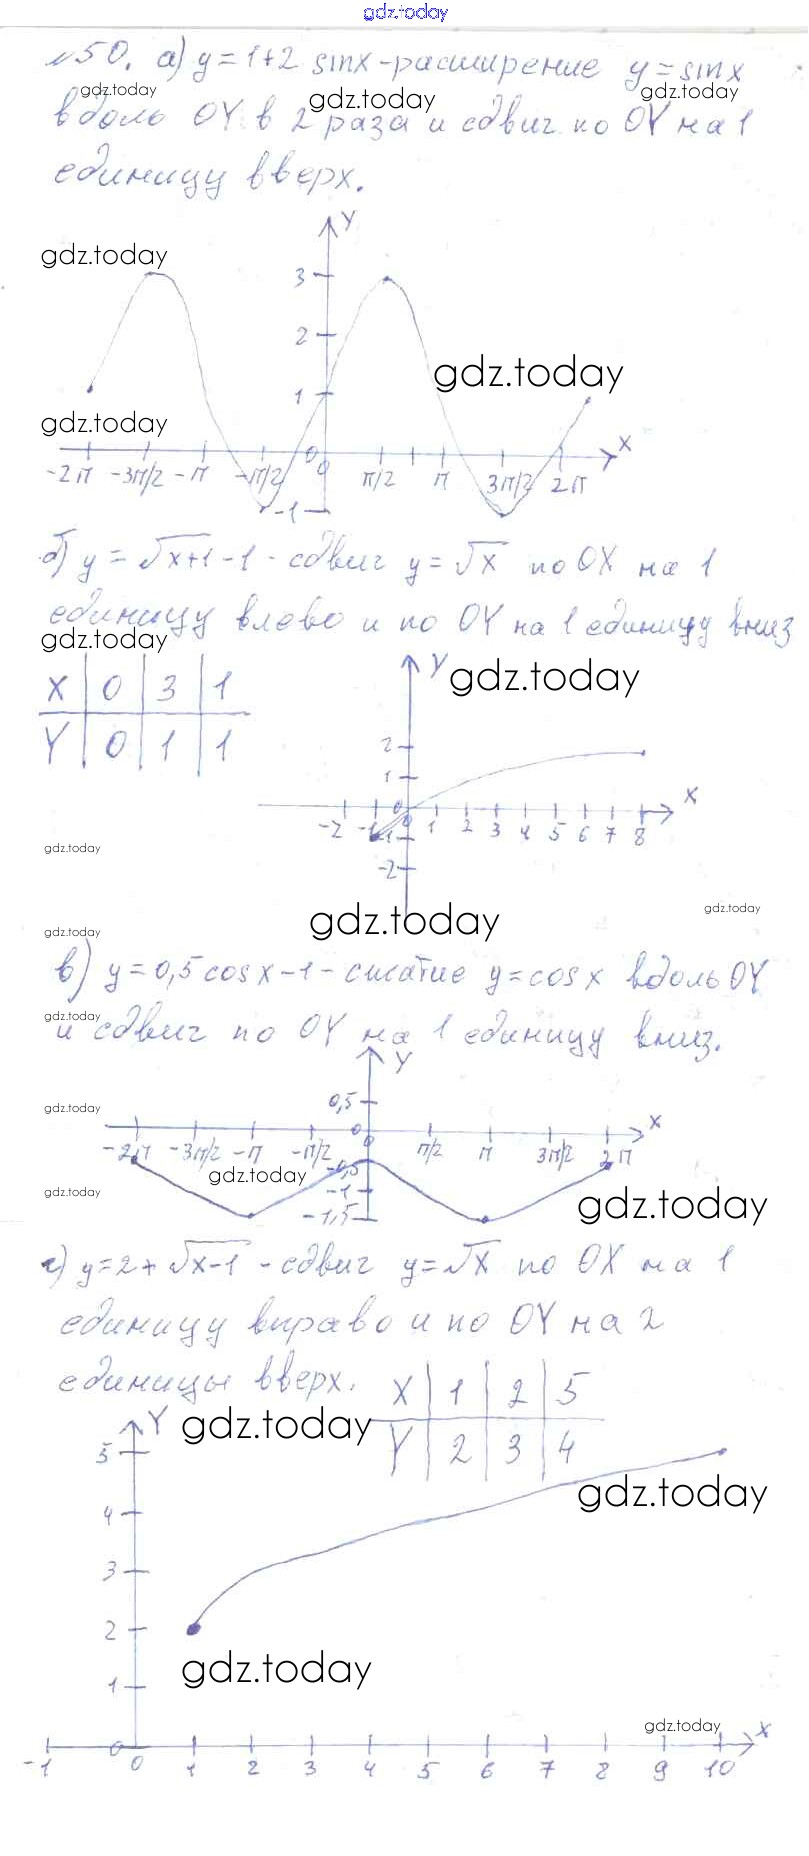 gdz.today
№50. а) y=1+2 sinx-расширение y=sinx
gdz.today gdz.today gdz.today
вдоль OY в 2 раза и сдвиг по OY на 1
единицу вверх.
Y
gdz.today
3
2
gdz.today
1
gdz.today
0
X
-2π -3π/2 -π -π/2 0 π/2 π 3π/2 2π
-1
б) y=√x+1-1 - сдвиг y=√x по OX на 1
единицу влево и по OY на 1 единицу вниз
gdz.today
X 0 3 1
Y 0 1 1
Y
gdz.today
2
1
0
X
-2 -1 0 1 2 3 4 5 6 7 8
-1
-2
gdz.today
gdz.today
gdz.today
gdz.today
в) y=0,5cosx-1-сжатие y=cosx вдоль OY
gdz.today
и сдвиг по OY на 1 единицу вниз.
Y
0,5
gdz.today
0
X
-2π -3π/2 -π -π/2 0 π/2 π 3π/2 2π
gdz.today
-0,5
-1
gdz.today
gdz.today
-1,5
г) y=2+√x-1 - сдвиг y=√x по OX на 1
единицу вправо и по OY на 2
единицы вверх.
X 1 2 5
Y 2 3 4
Y
gdz.today
5
gdz.today
4
3
2
gdz.today
1
gdz.today
0
X
-1 0 1 2 3 4 5 6 7 8 9 10